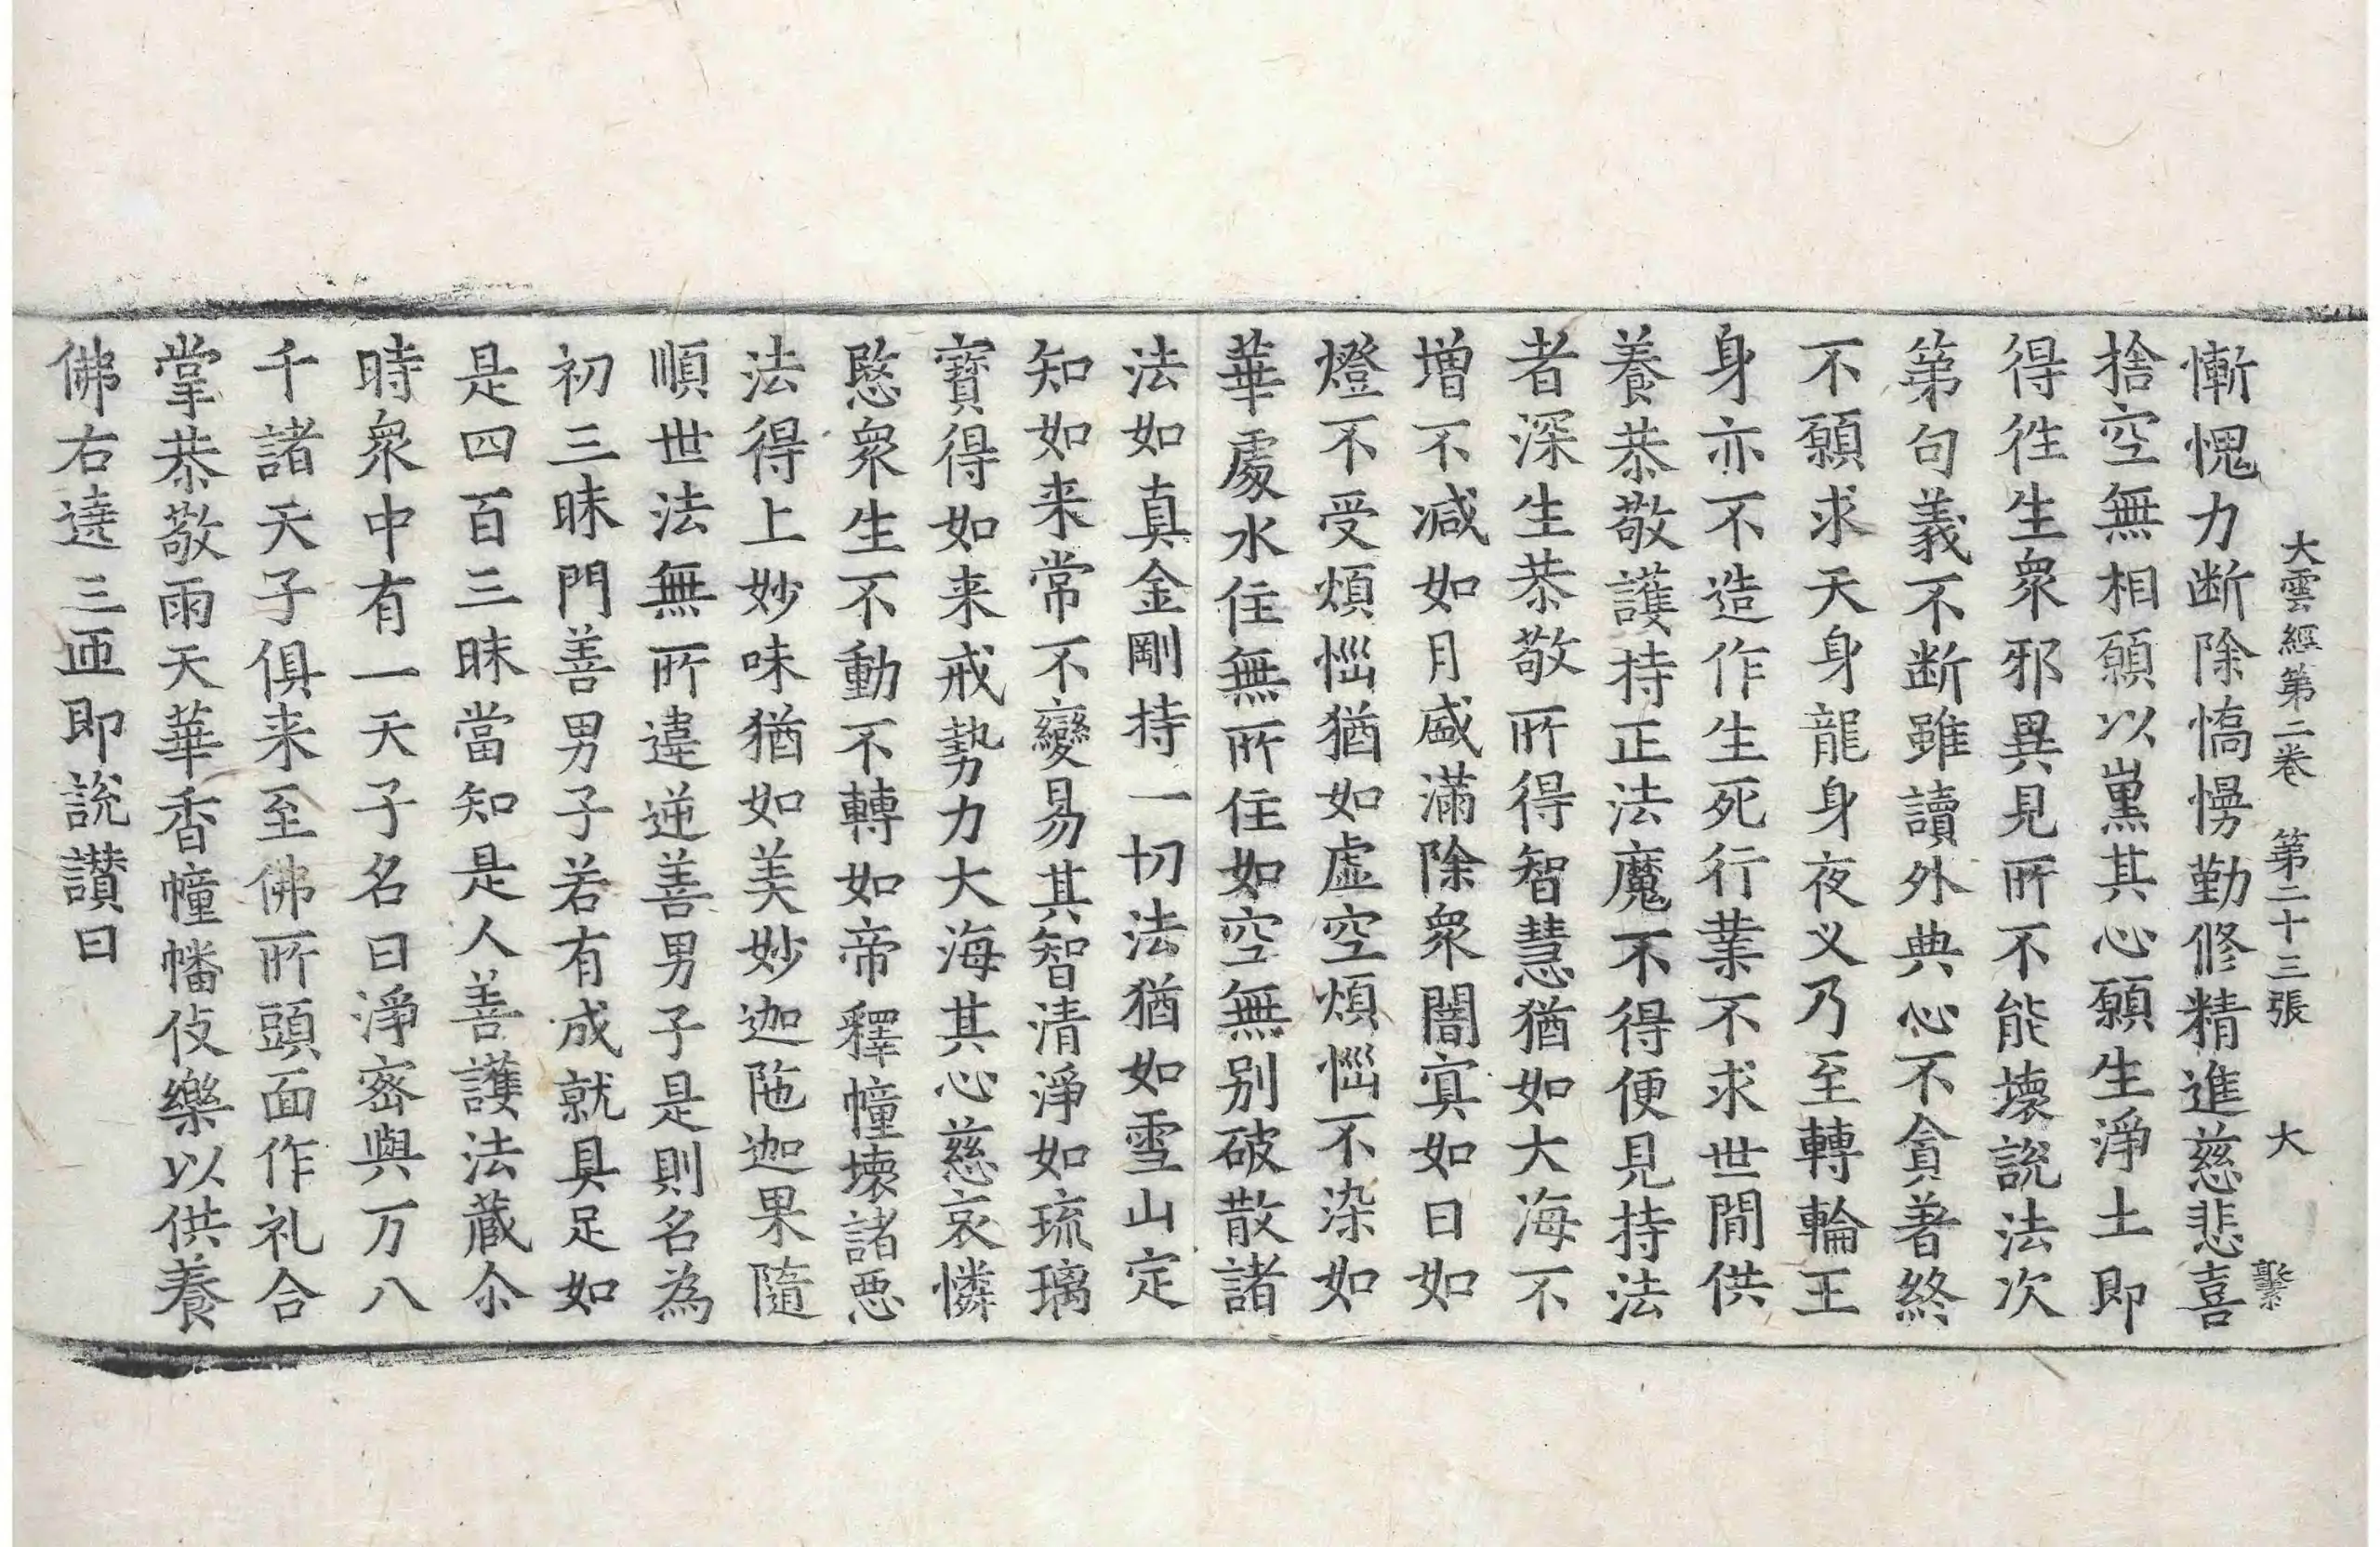 大雲經第二卷 第二十三張 大
慚愧力断除憍慢勤修精進慈悲喜
捨空無相願以熏其心願生淨土即
得徃生衆邪異見所不能壞說法次
第句義不断雖讀外典心不貪著終
不願求天身龍身夜叉乃至轉輪王
身亦不造作生死行業不求世間供
養恭敬護持正法魔不得便見持法
者深生恭敬所得智慧猶如大海不
増不减如月盛滿除衆闇㝠如日如
燈不受煩惱猶如虚空煩惱不染如
華處水住無所住如空無别破散諸
法如真金剛持一切法猶如雪山定
知如来常不變易其智清淨如琉璃
寶得如来戒勢力大海其心慈哀憐
愍衆生不動不轉如帝釋幢壞諸惡
法得上妙味猶如美妙迦陁迦果隨
順世法無所違逆善男子是則名為
初三昧門善男子若有成就具足如
是四百三昧當知是人善護法蔵尒
時衆中有一天子名曰淨宻與万八
千諸天子俱来至佛所頭面作礼合
掌恭敬雨天華香幢幡伎樂以供養
佛右遶三匝即說讃曰